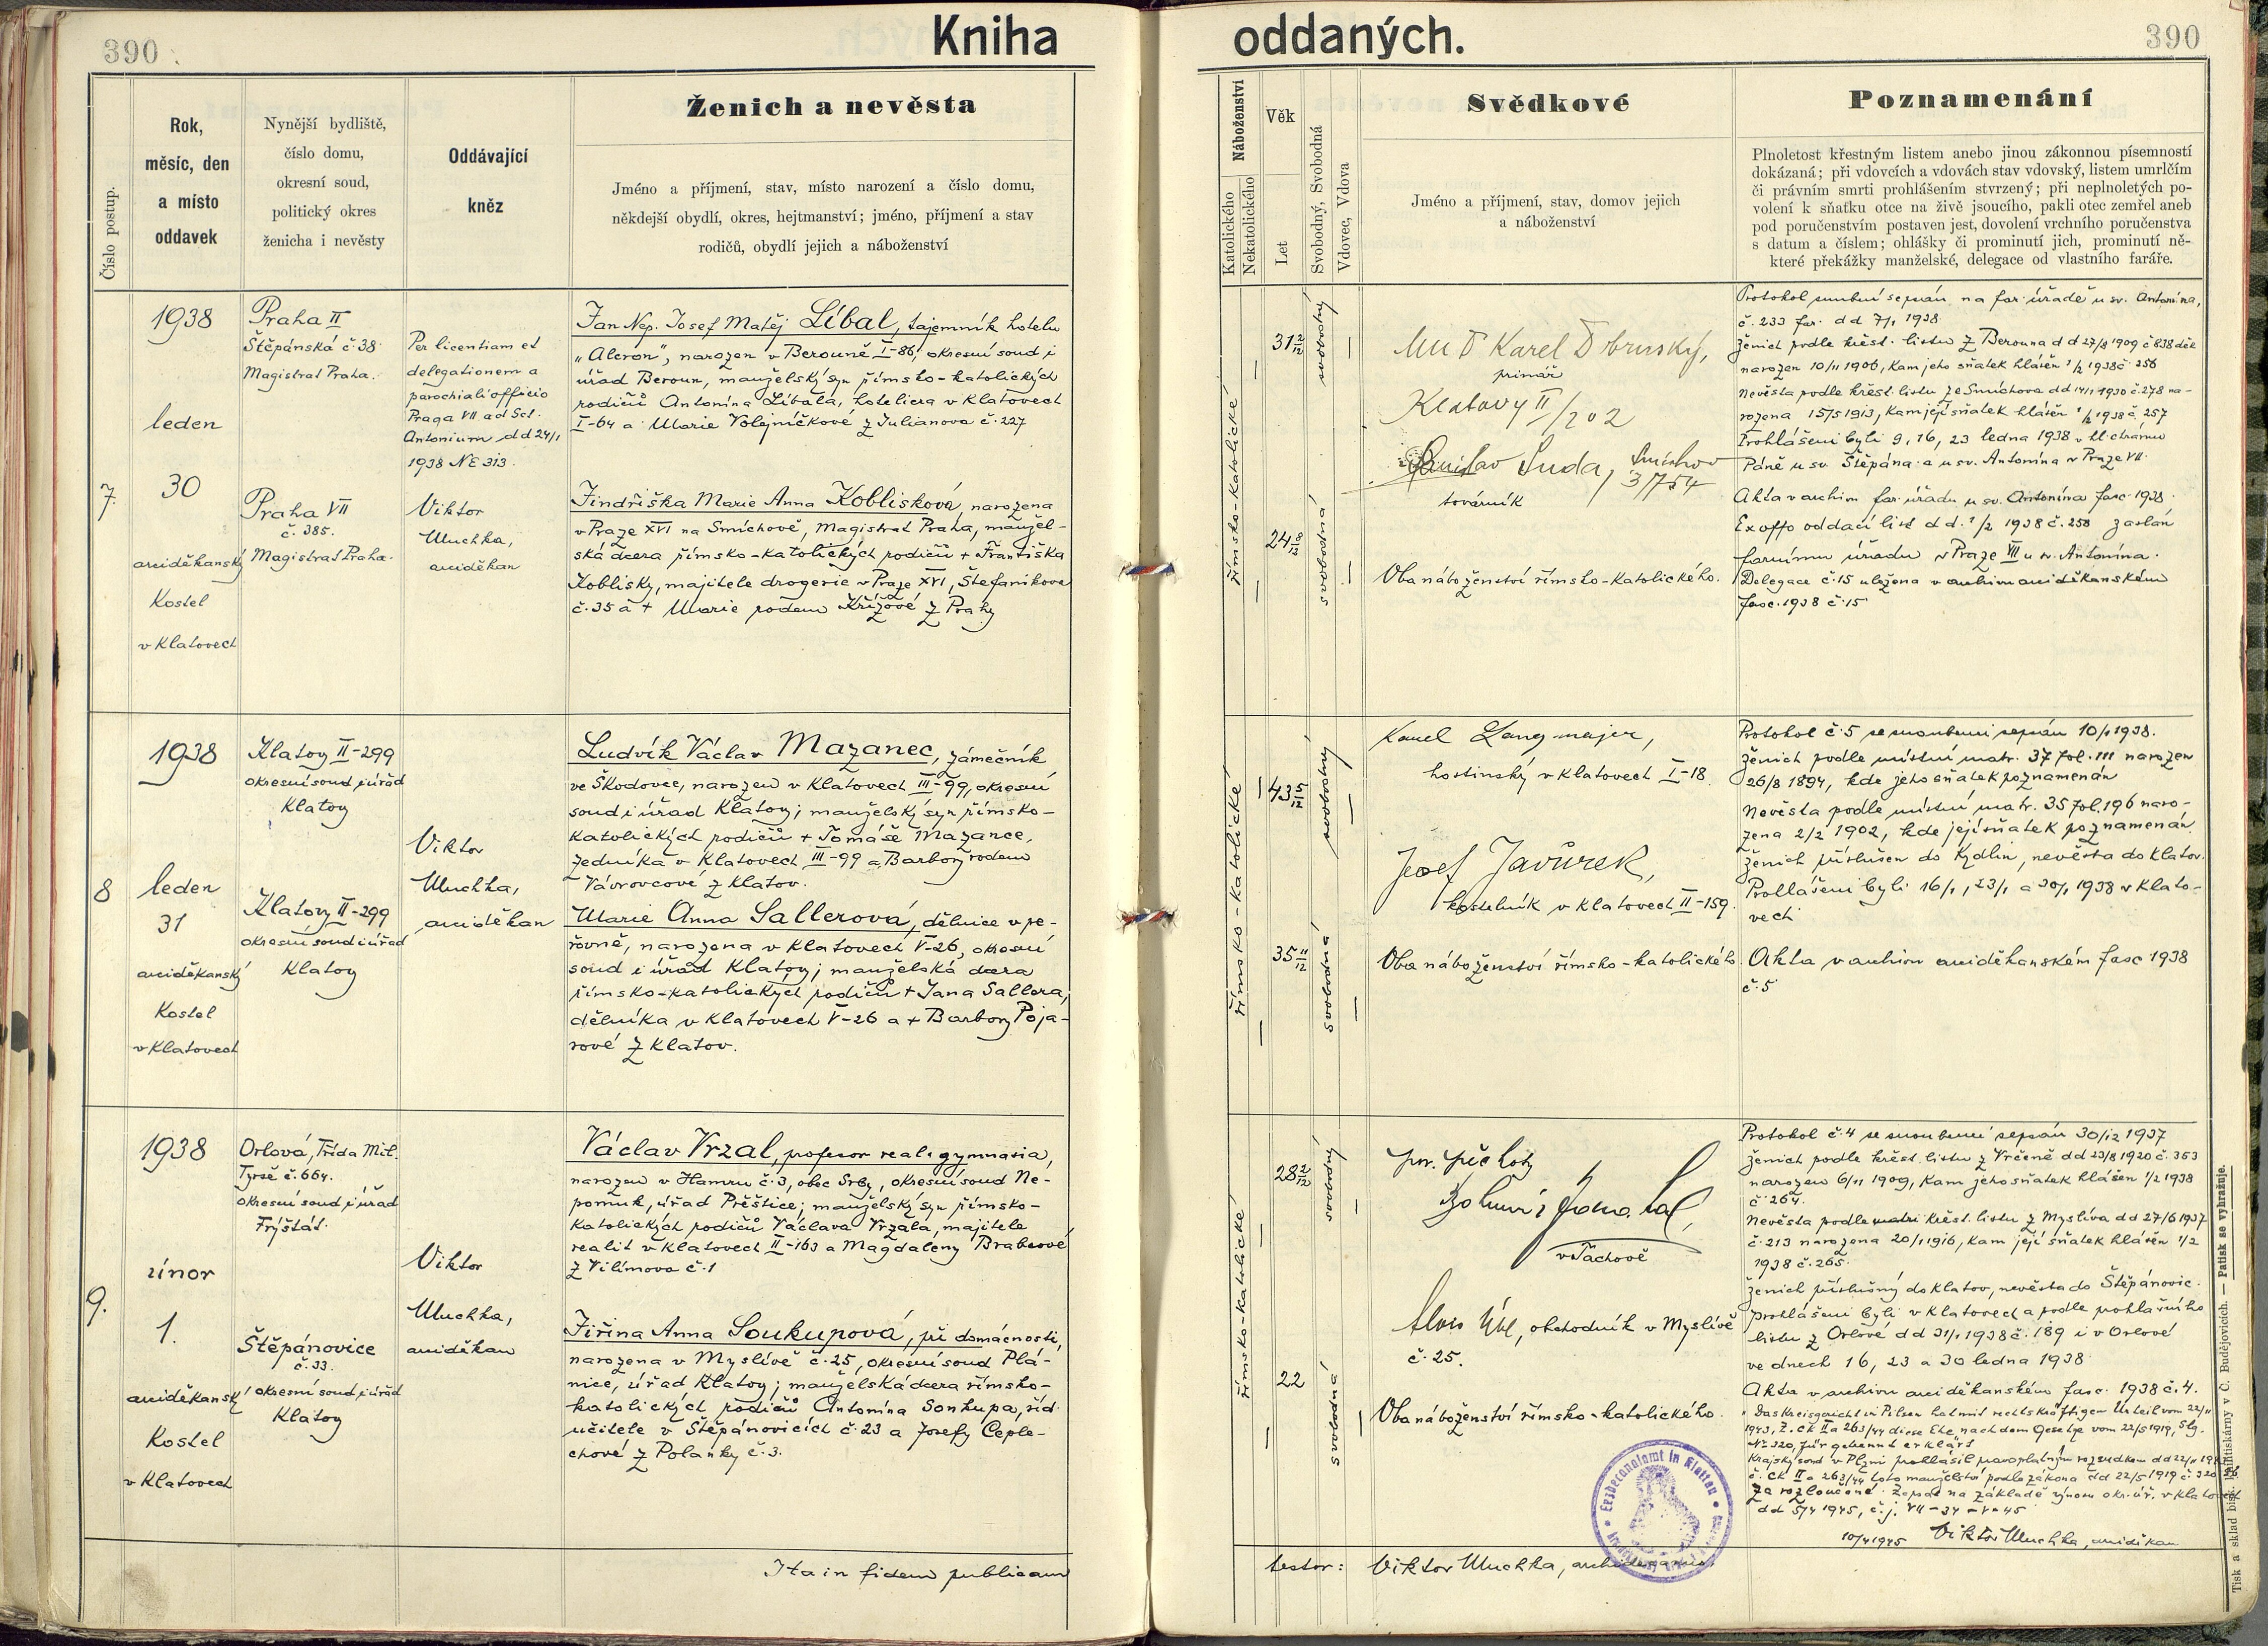 390
Kniha
oddaných.
390
Číslo postup.
Rok,
měsíc, den
a místo
oddavek
Nynější bydliště,
číslo domu,
okresní soud,
politický okres
ženicha i nevěsty
Oddávající
kněz
Ženich a nevěsta
Jméno a příjmení, stav, místo narození a číslo domu,
někdejší obydlí, okres, hejtmanství; jméno, příjmení a stav
rodičů, obydlí jejich a náboženství
Náboženství
Katolického
Nekatolického
Věk
Let
Svobodný, Svobodná
Vdovec, Vdova
Svědkové
Jméno a příjmení, stav, domov jejich
a náboženství
Poznamenání
Plnoletost křestným listem anebo jinou zákonnou písemností
dokázaná; při vdovcích a vdovách stav vdovský, listem umrlčím
či právním smrti prohlášením stvrzený; při neplnoletých po-
volení k sňatku otce na živě jsoucího, pakli otec zemřel aneb
pod poručenstvím postaven jest, dovolení vrchního poručenstva
s datum a číslem; ohlášky či prominutí jich, prominutí ně-
které překážky manželské, delegace od vlastního faráře.
7.
1938
leden
30
arciděkanský
kostel
v Klatovech
Praha II
Štěpánská č. 38
Magistrat Praha.
Praha VII
č. 385.
Magistrat Praha.
Per licentiam et
delegationem a
parochiali officio
Praga VII ad Sct.
Antonium dd 24/1
1938 NE 313.
Viktor
Muchka,
arciděkan
Jan Nep. Josef Matěj Líbal, tajemník hotelu
"Alcron", narozen v Berouně I-86, okresní soud i
úřad Beroun, manželský syn římsko-katolických
rodičů Antonína Líbala, hoteliera v Klatovech
I-64 a Marie Volejníčkové z Julianova č. 227
Jindřiška Marie Anna Koblisková, narozena
v Praze XVI na Smíchově, Magistrat Praha, manžel-
ská dcera římsko-katolických rodičů + Františka
Koblisky, majitele drogerie v Praze XVI, Štefanikova
č. 35 a + Marie rodem Křížové z Prahy
římsko-katolické
31 2/12
24 8/12
svobodný
svobodná
MUDr Karel Dobruský,
primář
Klatovy II/202
Suda, Smíchov
továrník
Oba náboženství římsko-katolického.
Protokol snubní sepsán na far. úřadě u sv. Antonína,
č. 233 far. dd 7/1 1938
Ženich podle křest. listu z Berouna dd 27/8 1909 č 838 děk
narozen 10/11 1906, kam jeho sňatek hlášen 1/2 1938 č 256
Nevěsta podle křest. listu ze Smíchova dd 14/1 1930 č. 278 na-
rozena 15/5 1913, kam její sňatek hlášen 1/2 1938 č. 257
Prohlášeni byli 9, 16, 23 ledna 1938 v hl. chrámu
Páně u sv. Štěpána a u sv. Antonína v Praze VII.
Akta v archivu far. úřadu u sv. Antonína fasc. 1938.
Ex offo oddací list dd. 1/2 1938 č. 258 zaslán
farnímu úřadu v Praze VII u sv. Antonína.
Delegace č. 15 uložena v archivu arciděkanském
fasc. 1938 č. 15
8
1938
leden
31
arciděkanský
kostel
v Klatovech
Klatovy II-299
okresní soud i úřad
Klatovy
Klatovy II-299
okresní soud i úřad
Klatovy
Viktor
Muchka,
arciděkan
Ludvík Václav Mazanec, zámečník
ve Škodovce, narozen v Klatovech III-99, okresní
soud i úřad Klatovy; manželský syn římsko-
katolických rodičů + Tomáše Mazance,
zedníka v Klatovech III-99 a Barbory rodem
Vávrovcové z Klatov.
Marie Anna Sallerová, dělnice v pe-
řovně, narozena v Klatovech V-26, okresní
soud i úřad Klatovy; manželská dcera
římsko-katolických rodičů + Jana Sallera,
dělníka v Klatovech V-26 a + Barbory Poja-
rové z Klatov.
římsko-katolické
43 5/12
35 11/12
svobodný
svobodná
Karel Langmajer,
hostinský v Klatovech I-18.
Josef Javůrek,
kostelník v Klatovech II-159.
Oba náboženství římsko-katolického.
Protokol č. 5 se snoubenci sepsán 10/1 1938.
Ženich podle místní matr. 37 fol. 111 narozen
26/8 1894, kde jeho sňatek poznamenán
Nevěsta podle místní matr. 35 fol. 196 naro-
zena 2/2 1902, kde její sňatek poznamenán.
Ženich příslušen do Kydlin, nevěsta do Klatov.
Prohlášeni byli 16/1, 23/1 a 30/1 1938 v Klato-
vech
Akta v archivu arciděkanském fasc 1938
č. 5
9.
1938
únor
1.
arciděkanský
kostel
v Klatovech
Orlová, Třída Mil.
Tyrše č. 664.
okresní soud i úřad
Frýštát.
Štěpánovice
č. 33.
okresní soud i úřad
Klatovy
Viktor
Muchka,
arciděkan
Václav Vrzal, profesor real. gymnasia,
narozen v Hamru č. 3, obec Srby, okresní soud Ne-
pomuk, úřad Přeštice; manželský syn římsko-
katolických rodičů Václava Vrzala, majitele
realit v Klatovech II-163 a Magdaleny Brabcové
z Vilímova č. 1
Jiřina Anna Soukupová, při domácnosti,
narozena v Myslívě č. 25, okresní soud Plá-
nice, úřad Klatovy; manželská dcera římsko-
katolických rodičů Antonína Soukupa, říd.
učitele v Štěpánovicích č. 23 a Josefy Ceple-
chové z Polánky č. 3.
římsko-katolické
28 2/12
22
svobodný
svobodná
por. pěchoty
v Tachově
obchodník v Myslívě
č. 25.
Oba náboženství římsko-katolického.
Protokol č. 4 se snoubenci sepsán 30/12 1937
Ženich podle křest. listu z Vrčeně dd 23/8 1920 č. 353
narozen 6/11 1909, kam jeho sňatek hlášen 1/2 1938
č 264.
Nevěsta podle křest. listu z Myslíva dd 27/6 1937
č. 213 narozena 20/1 1916, kam její sňatek hlášen 1/2
1938 č. 265.
Ženich příslušný do Klatov, nevěsta do Štěpánovic.
Prohlášeni byli v Klatovech a podle prohlašního
listu z Orlové dd 31/1 1938 č. 189 i v Orlové
ve dnech 16, 23 a 30 ledna 1938
Akta v archivu arciděkanském fasc. 1938 č. 4.
"Das Kreisgericht in Pilsen hat mit rechtskräftigen Urteil vom 22/11
1943, Z. Ck II a 263/44 diese Ehe nach dem Gesetze vom 22/5 1919, Slg.
Nr 320, für getrennt erklärt
Krajský soud v Plzni prohlásil pravoplatným rozsudkem dd 22/11
č. Ck II a 263/44 toto manželství podle zákona dd 22/5 1919 č 320 Sb
za rozloučené. Zapsáno na základě výnosu okr. úř. v Klatovech
dd 5/4 1945, č.j. VII-34-V-45
10/4 1945 Viktor Muchka, arciděkan
Ita in fidem publicam
testor: Viktor Muchka, archidecanus
Erzdecanalamt in Klattau
Tisk a sklad bisk. knihtiskárny v Č. Budějovicích. — Patisk se vyhražuje.